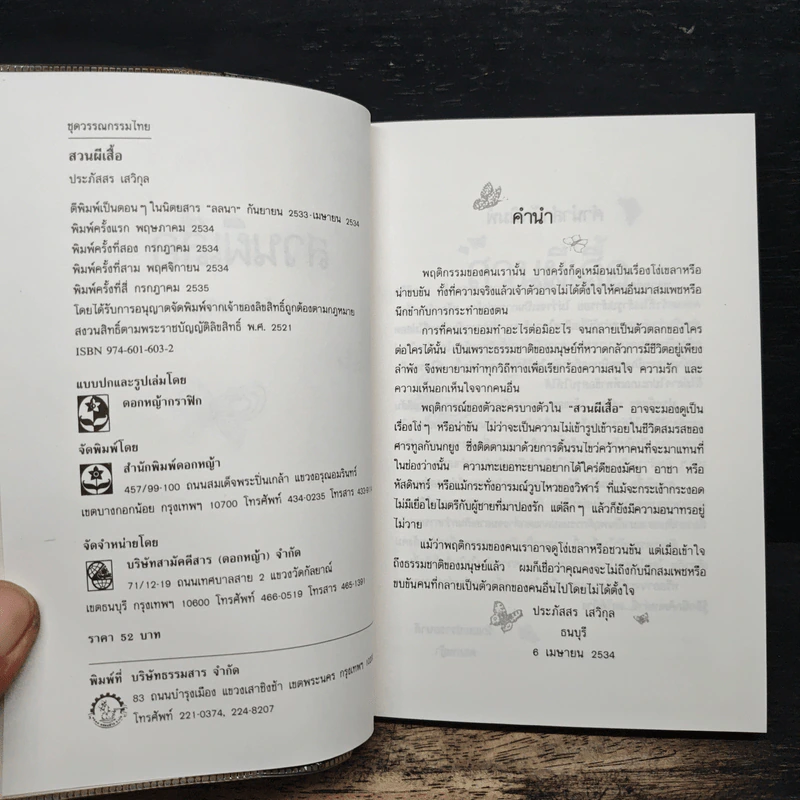 ชุดวรรณกรรมไทย
สวนผีเสื้อ
ประภัสสร เสวิกุล
ตีพิมพ์เป็นตอนๆ ในนิตยสาร "ลลนา" กันยายน 2533-เมษายน 2534
พิมพ์ครั้งแรก พฤษภาคม 2534
พิมพ์ครั้งที่สอง กรกฎาคม 2534
พิมพ์ครั้งที่สาม พฤศจิกายน 2534
พิมพ์ครั้งที่สี่ กรกฎาคม 2535
โดยได้รับการอนุญาตจัดพิมพ์จากเจ้าของลิขสิทธิ์ถูกต้องตามกฎหมาย
สงวนสิทธิ์ตามพระราชบัญญัติลิขสิทธิ์ พ.ศ. 2521
ISBN 974-601-603-2
แบบปกและรูปเล่มโดย
ดอกหญ้ากราฟิก
จัดพิมพ์โดย
สำนักพิมพ์ดอกหญ้า
457/99-100 ถนนสมเด็จพระปิ่นเกล้า แขวงอรุณอมรินทร์
เขตบางกอกน้อย กรุงเทพฯ 10700 โทรศัพท์ 434-0235 โทรสาร
จัดจำหน่ายโดย
บริษัทสามัคคีสาร (ดอกหญ้า) จำกัด
71/12-19 ถนนเทศบาลสาย 2 แขวงวัดกัลยาณ์
เขตธนบุรี กรุงเทพฯ 10600 โทรศัพท์ 466-0519 โทรสาร 465-1391
ราคา 52 บาท
พิมพ์ที่ บริษัทธรรมสาร จำกัด
83 ถนนบำรุงเมือง แขวงเสาชิงช้า เขตพระนคร กรุงเทพฯ
โทรศัพท์ 221-0374, 224-8207
คำนำ
พฤติกรรมของคนเรานั้น บางครั้งก็ดูเหมือนเป็นเรื่องโง่เขลาหรือ
น่าขบขัน ทั้งที่ความจริงแล้วเจ้าตัวอาจไม่ได้ตั้งใจให้คนอื่นมาสมเพชหรือ
นึกขำกับการกระทำของตน
การที่คนเรายอมทำอะไรต่อมิอะไร จนกลายเป็นตัวตลกของใคร
ต่อใครได้นั้น เป็นเพราะธรรมชาติของมนุษย์ที่หวาดกลัวการมีชีวิตอยู่เพียง
ลำพัง จึงพยายามทำทุกวิถีทางเพื่อเรียกร้องความสนใจ ความรัก และ
ความเห็นอกเห็นใจจากคนอื่น
พฤติการณ์ของตัวละครบางตัวใน "สวนผีเสื้อ" อาจจะมองดูเป็น
เรื่องโง่ๆ หรือน่าขัน ไม่ว่าจะเป็นความไม่เข้ารูปเข้ารอยในชีวิตสมรสของ
ศารทูลกับนกยูง ซึ่งติดตามมาด้วยการดิ้นรนไขว่คว้าหาคนที่จะมาแทนที่
ในช่องว่างนั้น ความทะเยอทะยานอยากได้ใคร่ดีของมัศยา อาชา หรือ
หัสดินทร์ หรือแม้กระทั่งอารมณ์วูบไหวของวิฬาร์ ที่แม้จะกระเง้ากระงอด
ไม่มีเยื่อใยไมตรีกับผู้ชายที่มาปองรัก แต่ลึกๆ แล้วก็ยังมีความอนาทรอยู่
ไม่วาย
แม้ว่าพฤติกรรมของคนเราอาจดูโง่เขลาหรือชวนขัน แต่เมื่อเข้าใจ
ถึงธรรมชาติของมนุษย์แล้ว ผมก็เชื่อว่าคุณคงจะไม่ถึงกับนึกสมเพชหรือ
ขบขันคนที่กลายเป็นตัวตลกของคนอื่นไปโดยไม่ได้ตั้งใจ
ประภัสสร เสวิกุล
ธนบุรี
6 เมษายน 2534